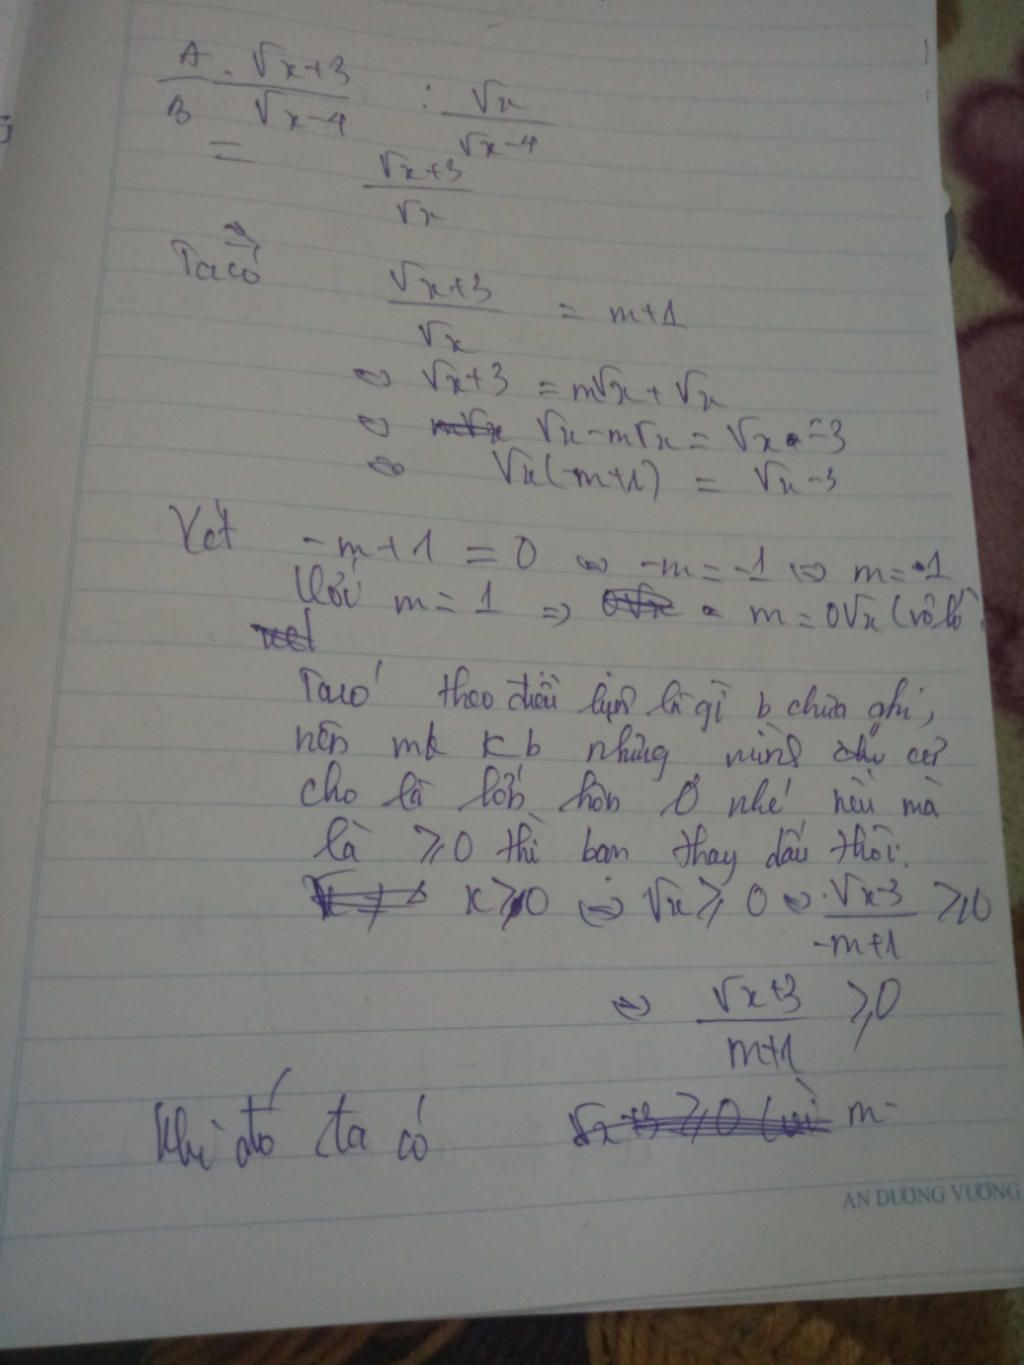 A/B = (√x+3)/(√x-4) : √x/(√x-4)
= (√x+3)/√x
Ta có (√x+3)/√x = m+1
⇔ √x+3 = m√x + √x
⇔ √x - m√x = √x - 3
⇔ √x(-m+1) = √x-3
Xét -m+1 = 0 ⇔ -m = -1 ⇔ m = 1
Với m = 1 ⇒ m = 0√x (vô lý)
Ta có theo điều kiện là gì b chưa ghi,
nên mk k b nhưng mình cứ
cho là lớn hơn 0 nhé nếu mà
là ≥0 thì bạn thay dấu thôi.
x≥0 ⇔ √x ≥ 0 ⇔ (√x-3)/(-m+1) ≥0
⇔ (√x+3)/(m+1) ≥0
Khi đó ta có m-
AN DƯƠNG VƯƠNG